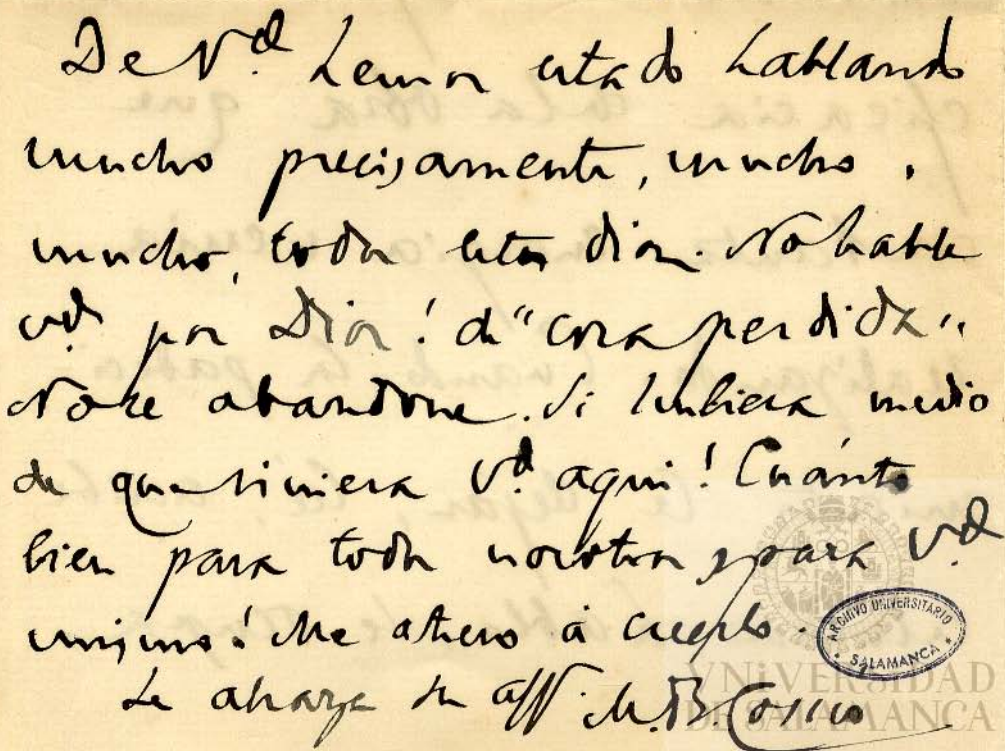 De Vd. hemos estado hablando
mucho precisamente, mucho,
mucho, todos estos dias. No hable
vd. por Dios! de "cosa perdida".
No se abandone. Si hubiera medio
de que viniera Vd. aqui! Cuánto
bien para todos nosotros y para Vd
mismo! Me atrevo á creerlo.
Le abraza su aff. M. B. Cossío
ARCHIVO UNIVERSITARIO
SALAMANCA
VNiVERSiDAD
DE SALAMANCA